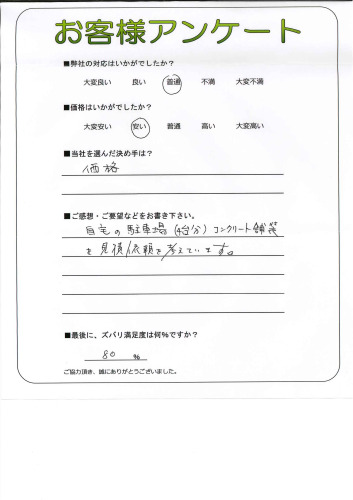 お客様アンケート
■弊社の対応はいかがでしたか?
大変良い 良い 普通 不満 大変不満
■価格はいかがでしたか?
大変安い 安い 普通 高い 大変高い
■当社を選んだ決め手は?
価格
■ご感想・ご要望などをお書き下さい。
自宅の駐車場(4台分)コンクリート舗装
を見積依頼を考えています。
■最後に、ズバリ満足度は何%ですか?
80 %
ご協力頂き、誠にありがとうございました。